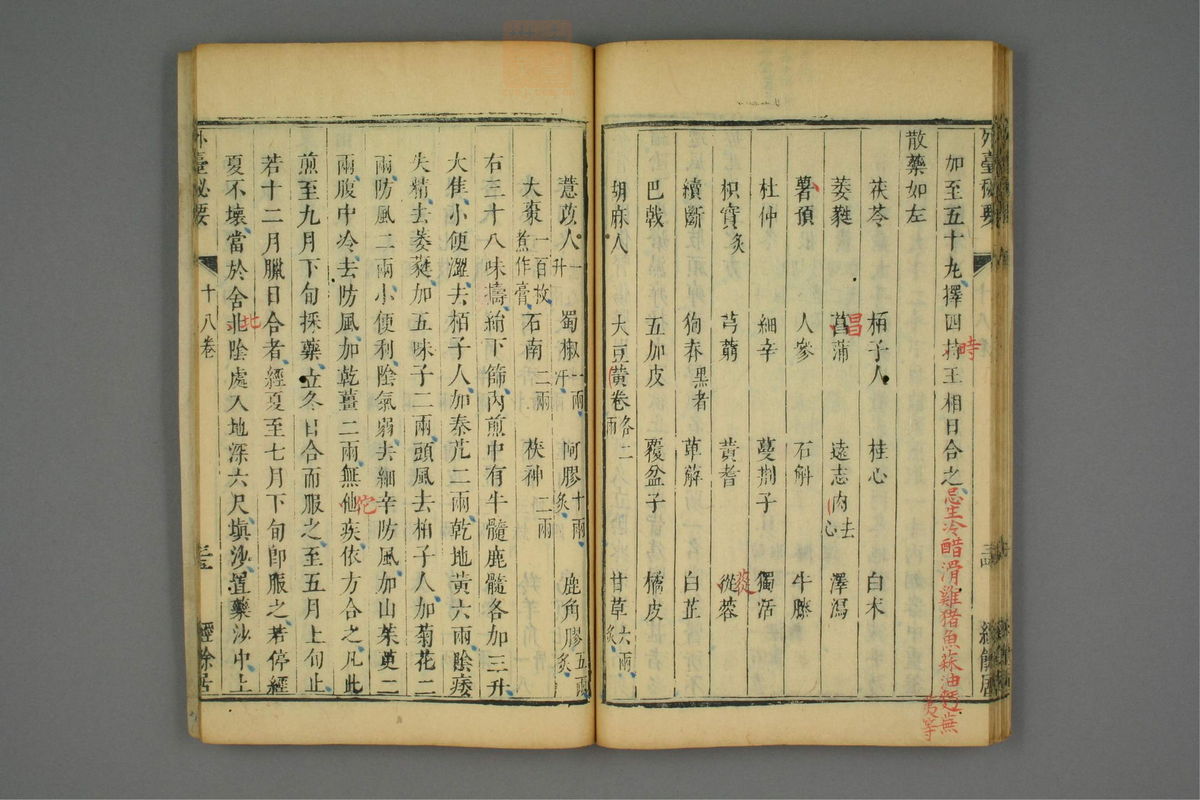 外臺祕要
加至五十九擇四時王相日合之
忌生冷醋滑雞猪魚蒜油麪蕪
荑等
時
散藥如左
茯苓 栢子人 桂心 白朮
萎蕤 菖蒲 遠志去心 澤瀉
昌
薯預 人參 石斛 牛膝
杜仲 細辛 蔓荆子 獨活
枳實炙 芎藭 黃耆 從蓉
蓯
續斷 狗脊黑者 萆薢 白芷
巴戟 五加皮 覆盆子 橘皮
胡麻人 大豆黃卷各二兩 甘草六兩炙
薏苡人一升 蜀椒一兩汗 阿膠十兩炙 鹿角膠五兩炙
大棗一百枚蒸作膏 石南二兩 茯神二兩
右三十八味擣絀下篩內煎中有牛髓鹿髓各加三升
大隹小便澀去栢子人加秦艽二兩乾地黃六兩陰痿
失精去萎蕤加五味子二兩頭風去栢子人加菊花二
兩防風二兩小便利陰氣弱去細辛防風加山茱萸二
兩腹中冷去防風加乾薑二兩無他疾依方合之凡此
佗
煎至九月下旬採藥立冬日合而服之至五月上旬止
若十二月臘日合者經夏至七月下旬卽服之若停經
北
夏不壞當於舍北陰處入地深六尺塡沙置藥沙中上
外臺祕要
十八卷
經餘居